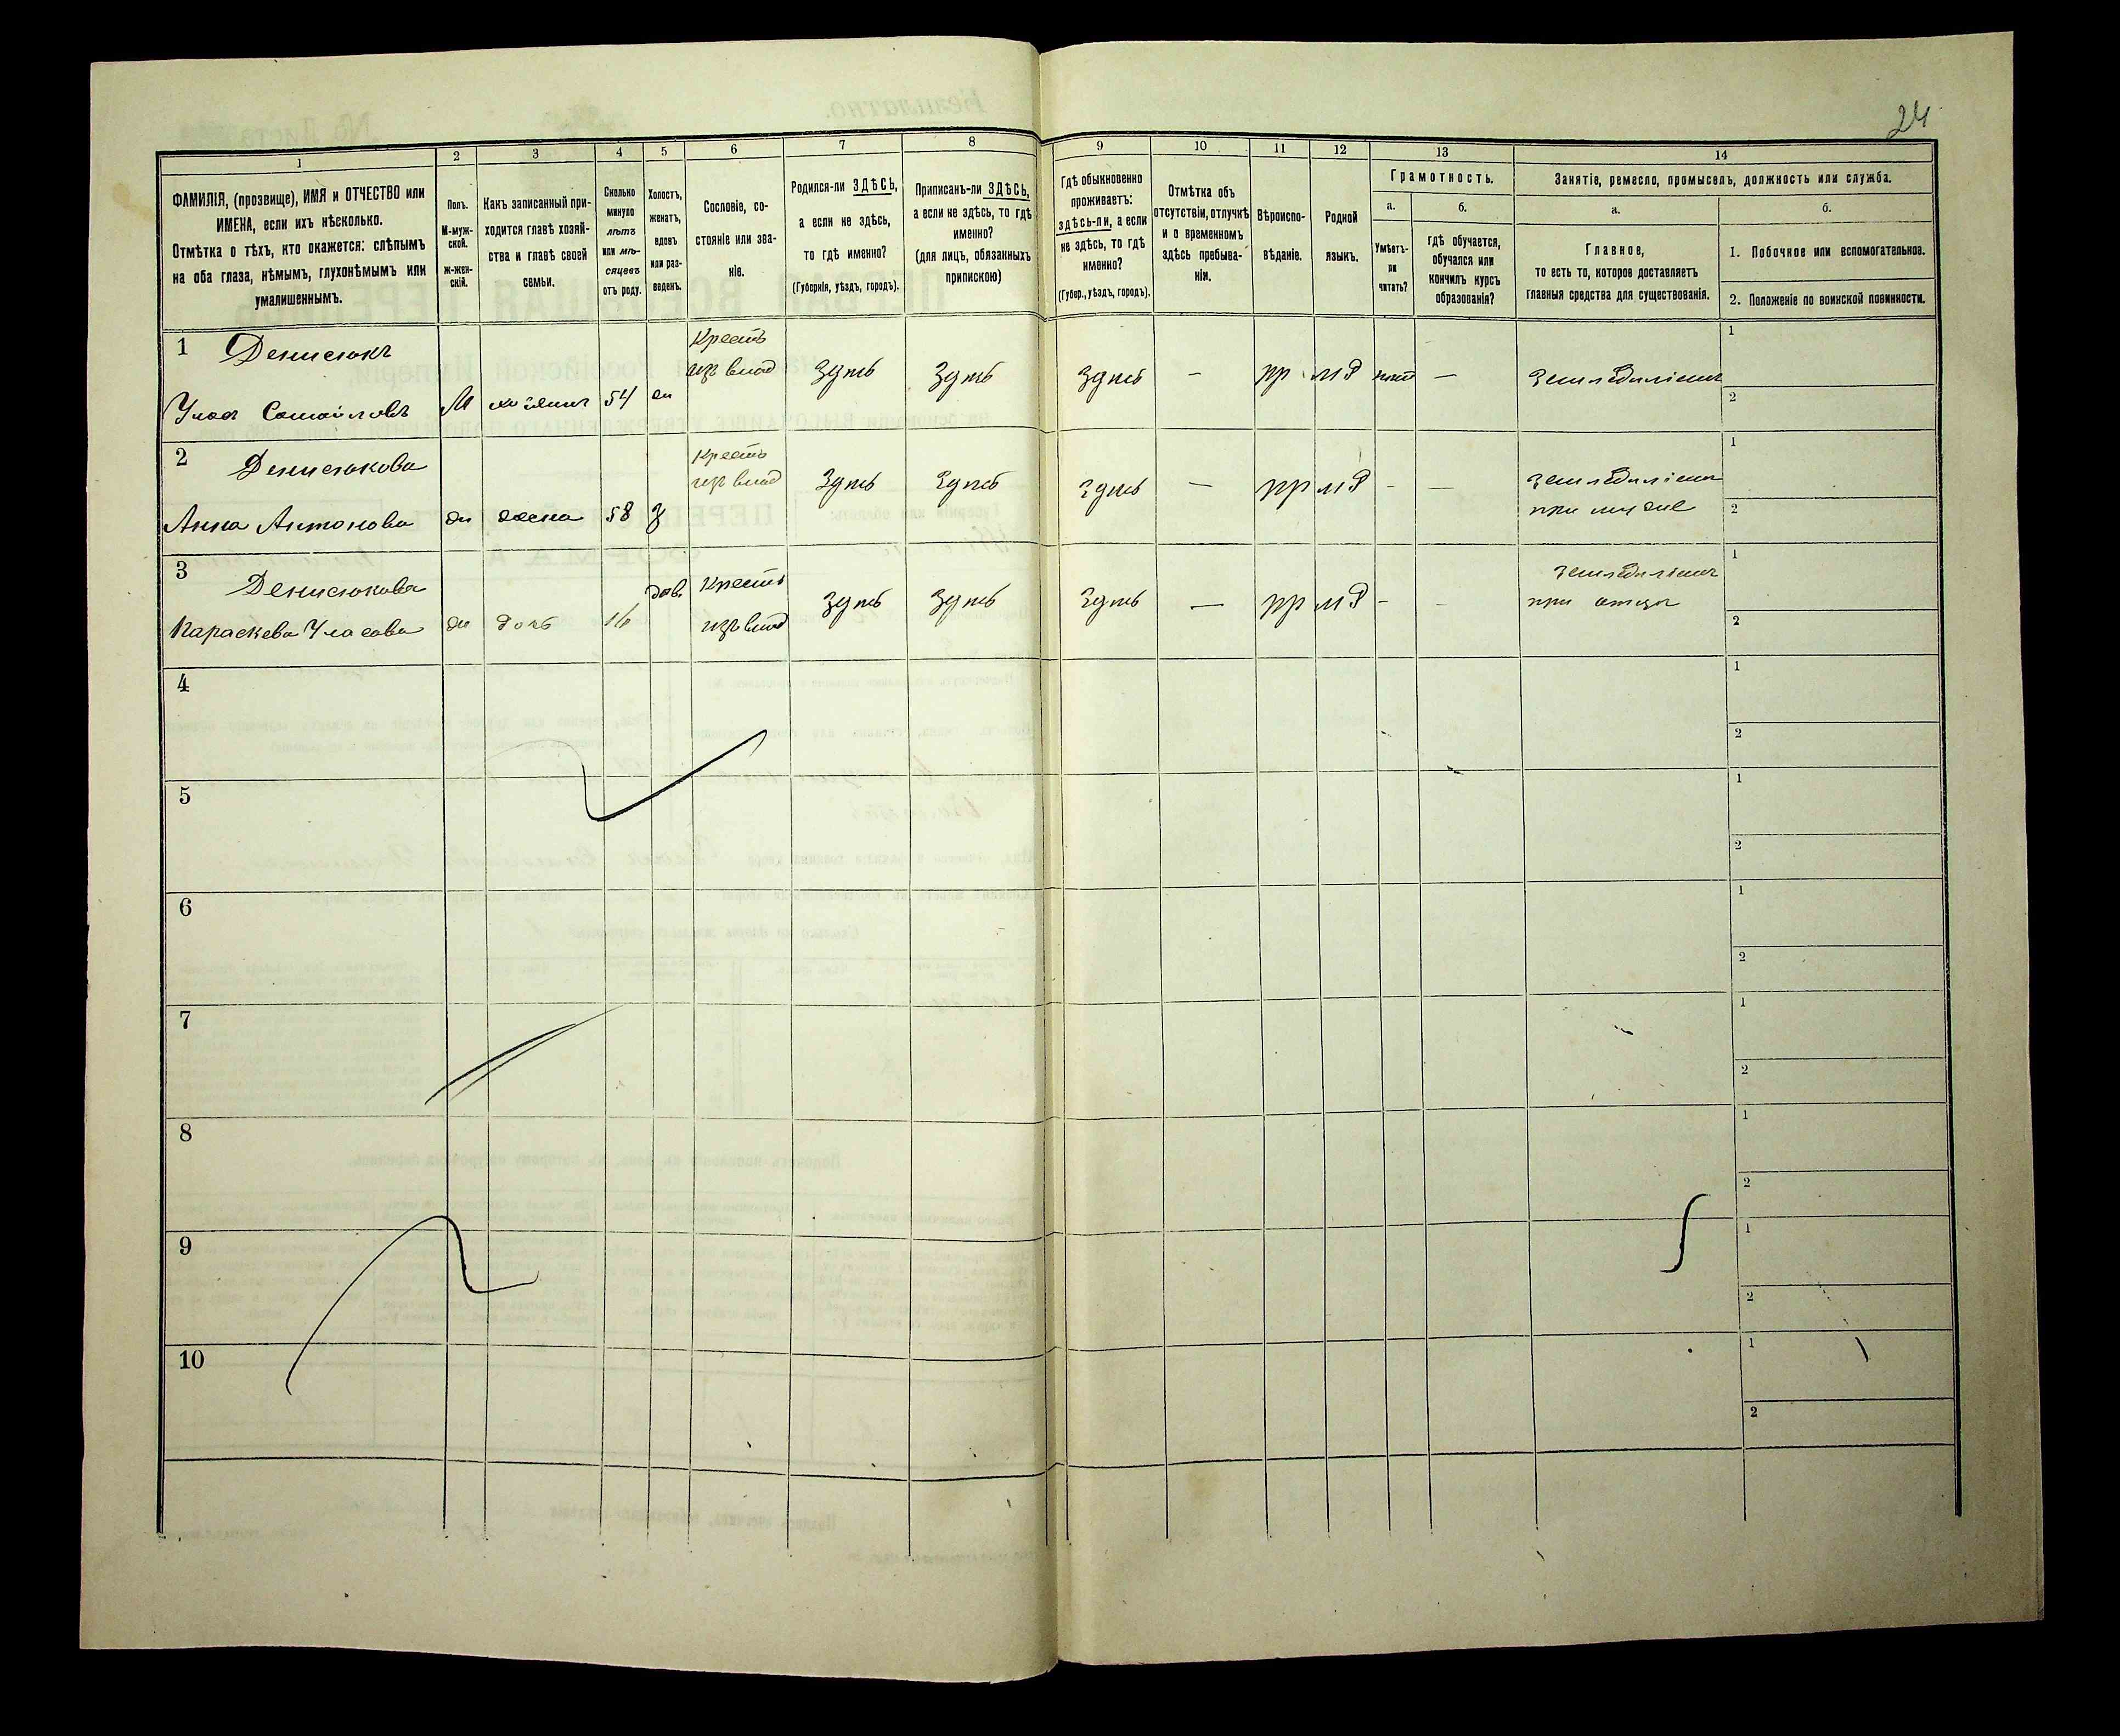 24
1
2
3
4
5
6
7
8
9
10
11
12
13
14
ФАМИЛІЯ, (прозвище), ИМЯ и ОТЧЕСТВО или
ИМЕНА, если ихъ нѣсколько.
Отмѣтка о тѣхъ, кто окажется: слѣпымъ
на оба глаза, нѣмымъ, глухонѣмымъ или
умалишеннымъ.
Полъ.
М-муж-
ской.
Ж-жен-
скій.
Какъ записанный при-
ходится главѣ хозяй-
ства и главѣ своей
семьи.
Сколько
минуло
лѣтъ
или мѣ-
сяцевъ
отъ роду.
Холостъ,
женатъ,
вдовъ
или раз-
веденъ.
Сословіе, со-
стояніе или зва-
ніе.
Родился-ли ЗДѢСЬ,
а если не здѣсь,
то гдѣ именно?
(Губернія, уѣздъ, городъ).
Приписанъ-ли ЗДѢСЬ,
а если не здѣсь, то гдѣ
именно?
(для лицъ, обязанныхъ
припискою)
Гдѣ обыкновенно
проживаетъ:
здѣсь-ли, а если
не здѣсь, то гдѣ
именно?
(Губер., уѣздъ, городъ).
Отмѣтка объ
отсутствіи, отлучкѣ
и о временномъ
здѣсь пребыва-
ніи.
Вѣроиспо-
вѣданіе.
Родной
языкъ.
Грамотность.
а.
Умѣетъ-
ли
читать?
б.
гдѣ обучается,
обучался или
кончилъ курсъ
образованія?
Занятіе, ремесло, промыселъ, должность или служба.
а.
Главное,
то есть то, которое доставляетъ
главныя средства для существованія.
б.
1. Побочное или вспомогательное.
2. Положеніе по воинской повинности.
1 Денисюкъ
Крест
из влад
Здѣсь Здѣсь Здѣсь — пр мР нѣт —
М хозяин 54 ж
1
2
2 Денисюкова
Крест
из влад
Здѣсь Здѣсь Здѣсь — пр мР - —
Анна Антонова ж жена 58 з
при муже
1
2
3 Денисюкова
дѣв Крест
из влад
Здѣсь Здѣсь Здѣсь — пр мР - -
Параскева Уласова ж дочь 16
при отцѣ
1
2
4
1
2
5
1
2
6
1
2
7
1
2
8
1
2
9
1
2
10
1
2